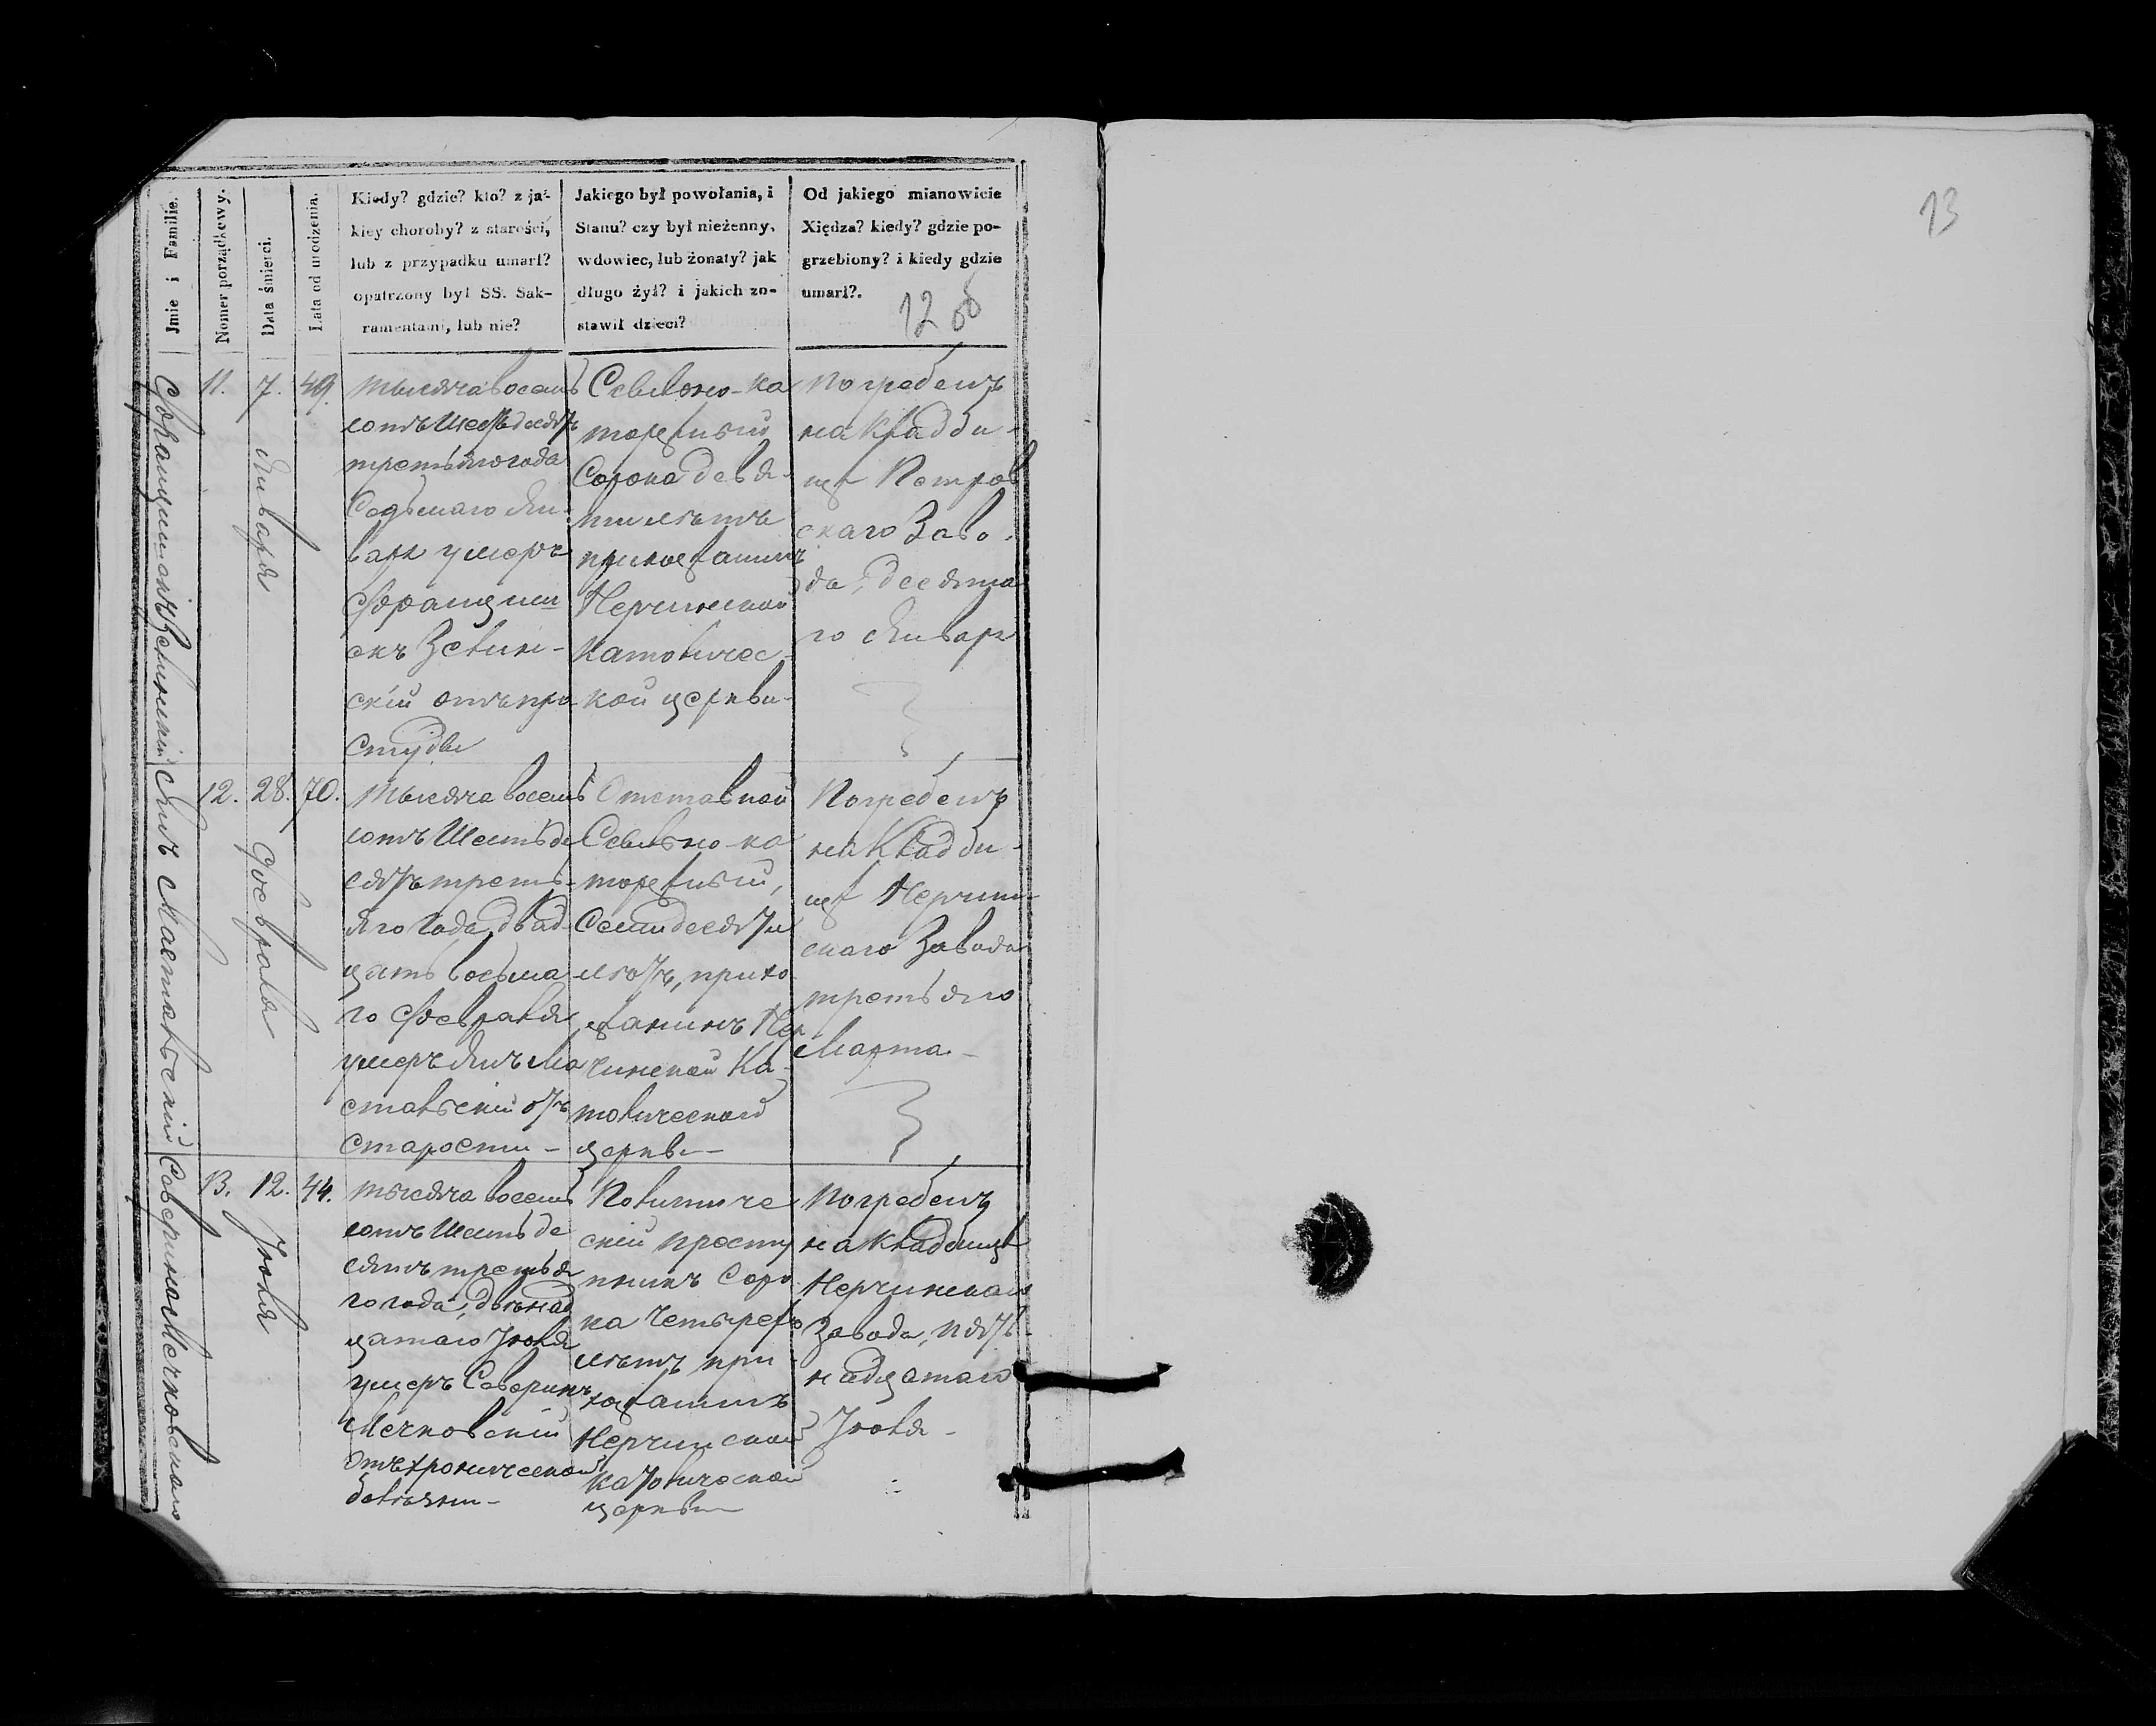 13
Jmie i Familie.
Nomer porządkowy.
Data śmierci.
Lata od urodzenia.
Kiedy? gdzie? kto? z ja-
kiey choroby? z starości,
lub z przypadku umarł?
opatrzony był SS. Sak-
ramentami, lub nie?
Jakiego był powołania, i
Stanu? czy był nieżenny,
wdowiec, lub żonaty? jak
długo żył? i jakich zo-
stawił dzieci?
Od jakiego mianowicie
Xiędza? kiedy? gdzie po-
grzebiony? i kiedy gdzie
umarł?.
12 об
11.
7.
Января
49.
Тысяча восемь
сотъ Шестьдесятъ
третьяго года
Седьмаго Ян-
варя умеръ
Францыш
скій отъ про
студы
Сыльно-ка
торжный
Сорока девя-
ти летъ
прихожанинъ
Нерчинской
Католичес-
кой церкви-
Погребенъ
на Кладби-
щѣ Петров
скаго Заво-
да, десята
го Января
Янъ Маставскій
12.
28.
Февраля
70.
Тысяча восемь
сотъ Шестьде
сятъ треть-
яго Года, двад
цать восьма
го Февраля
умеръ Янъ Ма
ставскій отъ
старости-
Отставной
Сыльно-ка
торжный,
Семидесяти
лѣтъ, прихо
жанинъ Нер
чинской Ка-
толической
церкви-
Погребенъ
на Кладби-
щѣ Нерчин-
скаго Завода
третьяго
Марта-
13.
12.
Іюля
44.
Тысяча восемь
сотъ Шестьде
сятъ третья
го года, двѣнад
цатаго Іюля
умеръ Северинъ
Мечковскій
отъ хронической
болѣзни-
Политиче
скій престу
пникъ Соро
ка четырехъ
лѣтъ при-
хожанинъ
Нерчинской
католической
церкви-
Погребенъ
на кладбищѣ
Нерчинскаго
Завода, пят-
надцатаго
Іюля-